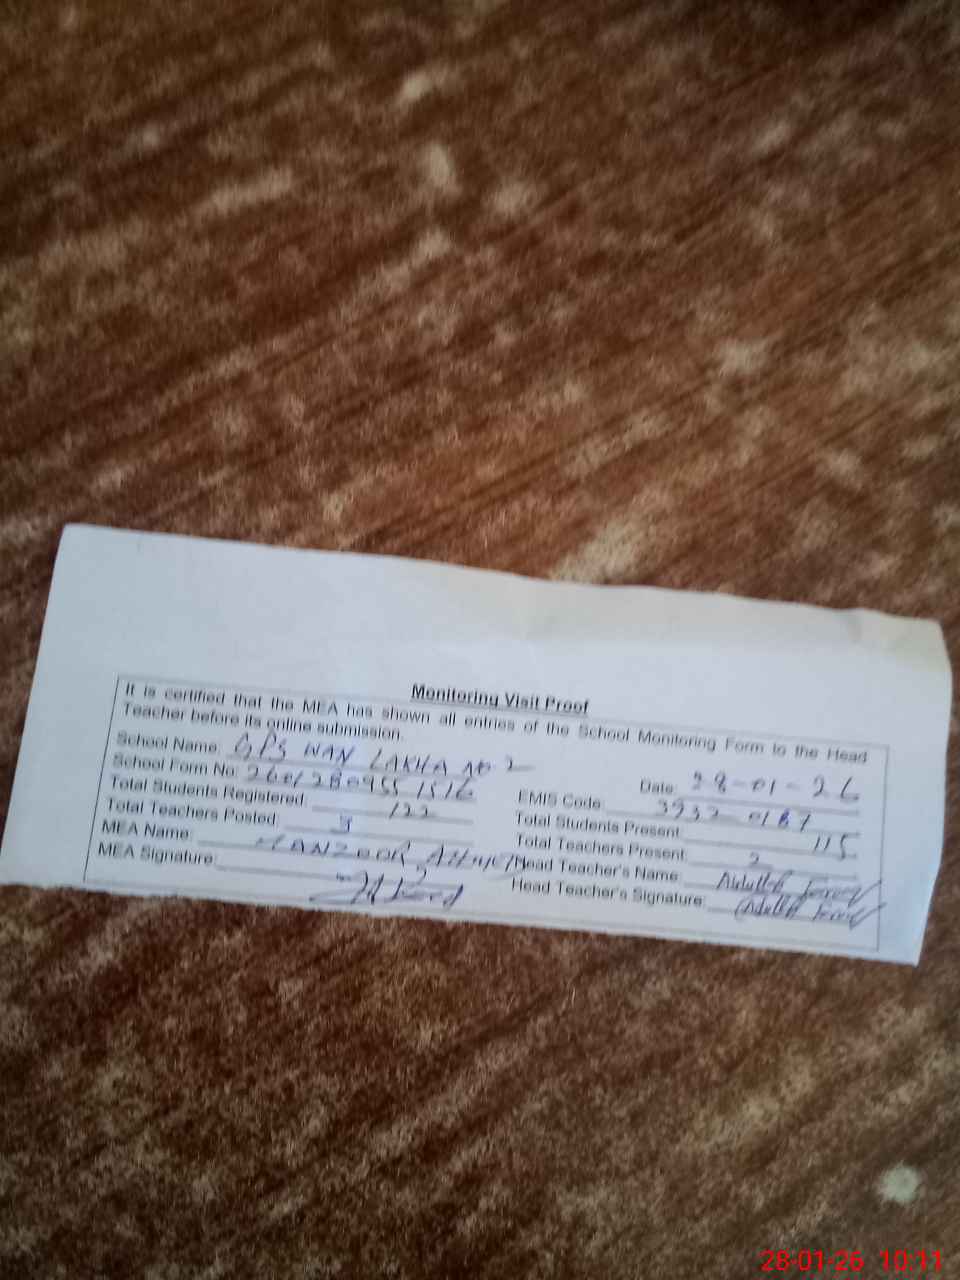 Monitoring Visit Proof
It is certified that the MEA has shown all entries of the School Monitoring Form to the Head
Teacher before its online submission.
School Name: GPS WAN LAKHA No 2
Date: 28-01-26
School Form No:
EMIS Code:
Total Students Registered: 122
Total Students Present: 115
Total Teachers Posted: 3
Total Teachers Present: 2
MEA Name: MANZOOR AHMED
Head Teacher's Name:
MEA Signature:
Head Teacher's Signature:
28-01-26 10:11